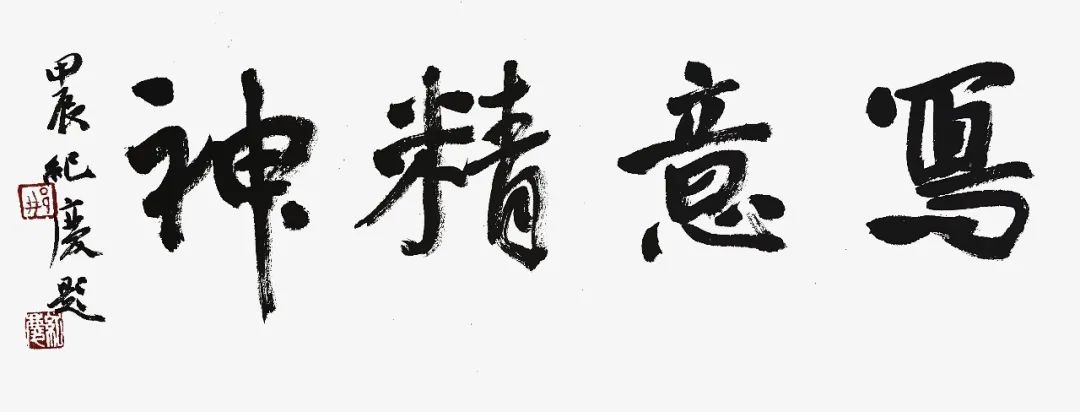 寫意精神
甲辰紀慶題